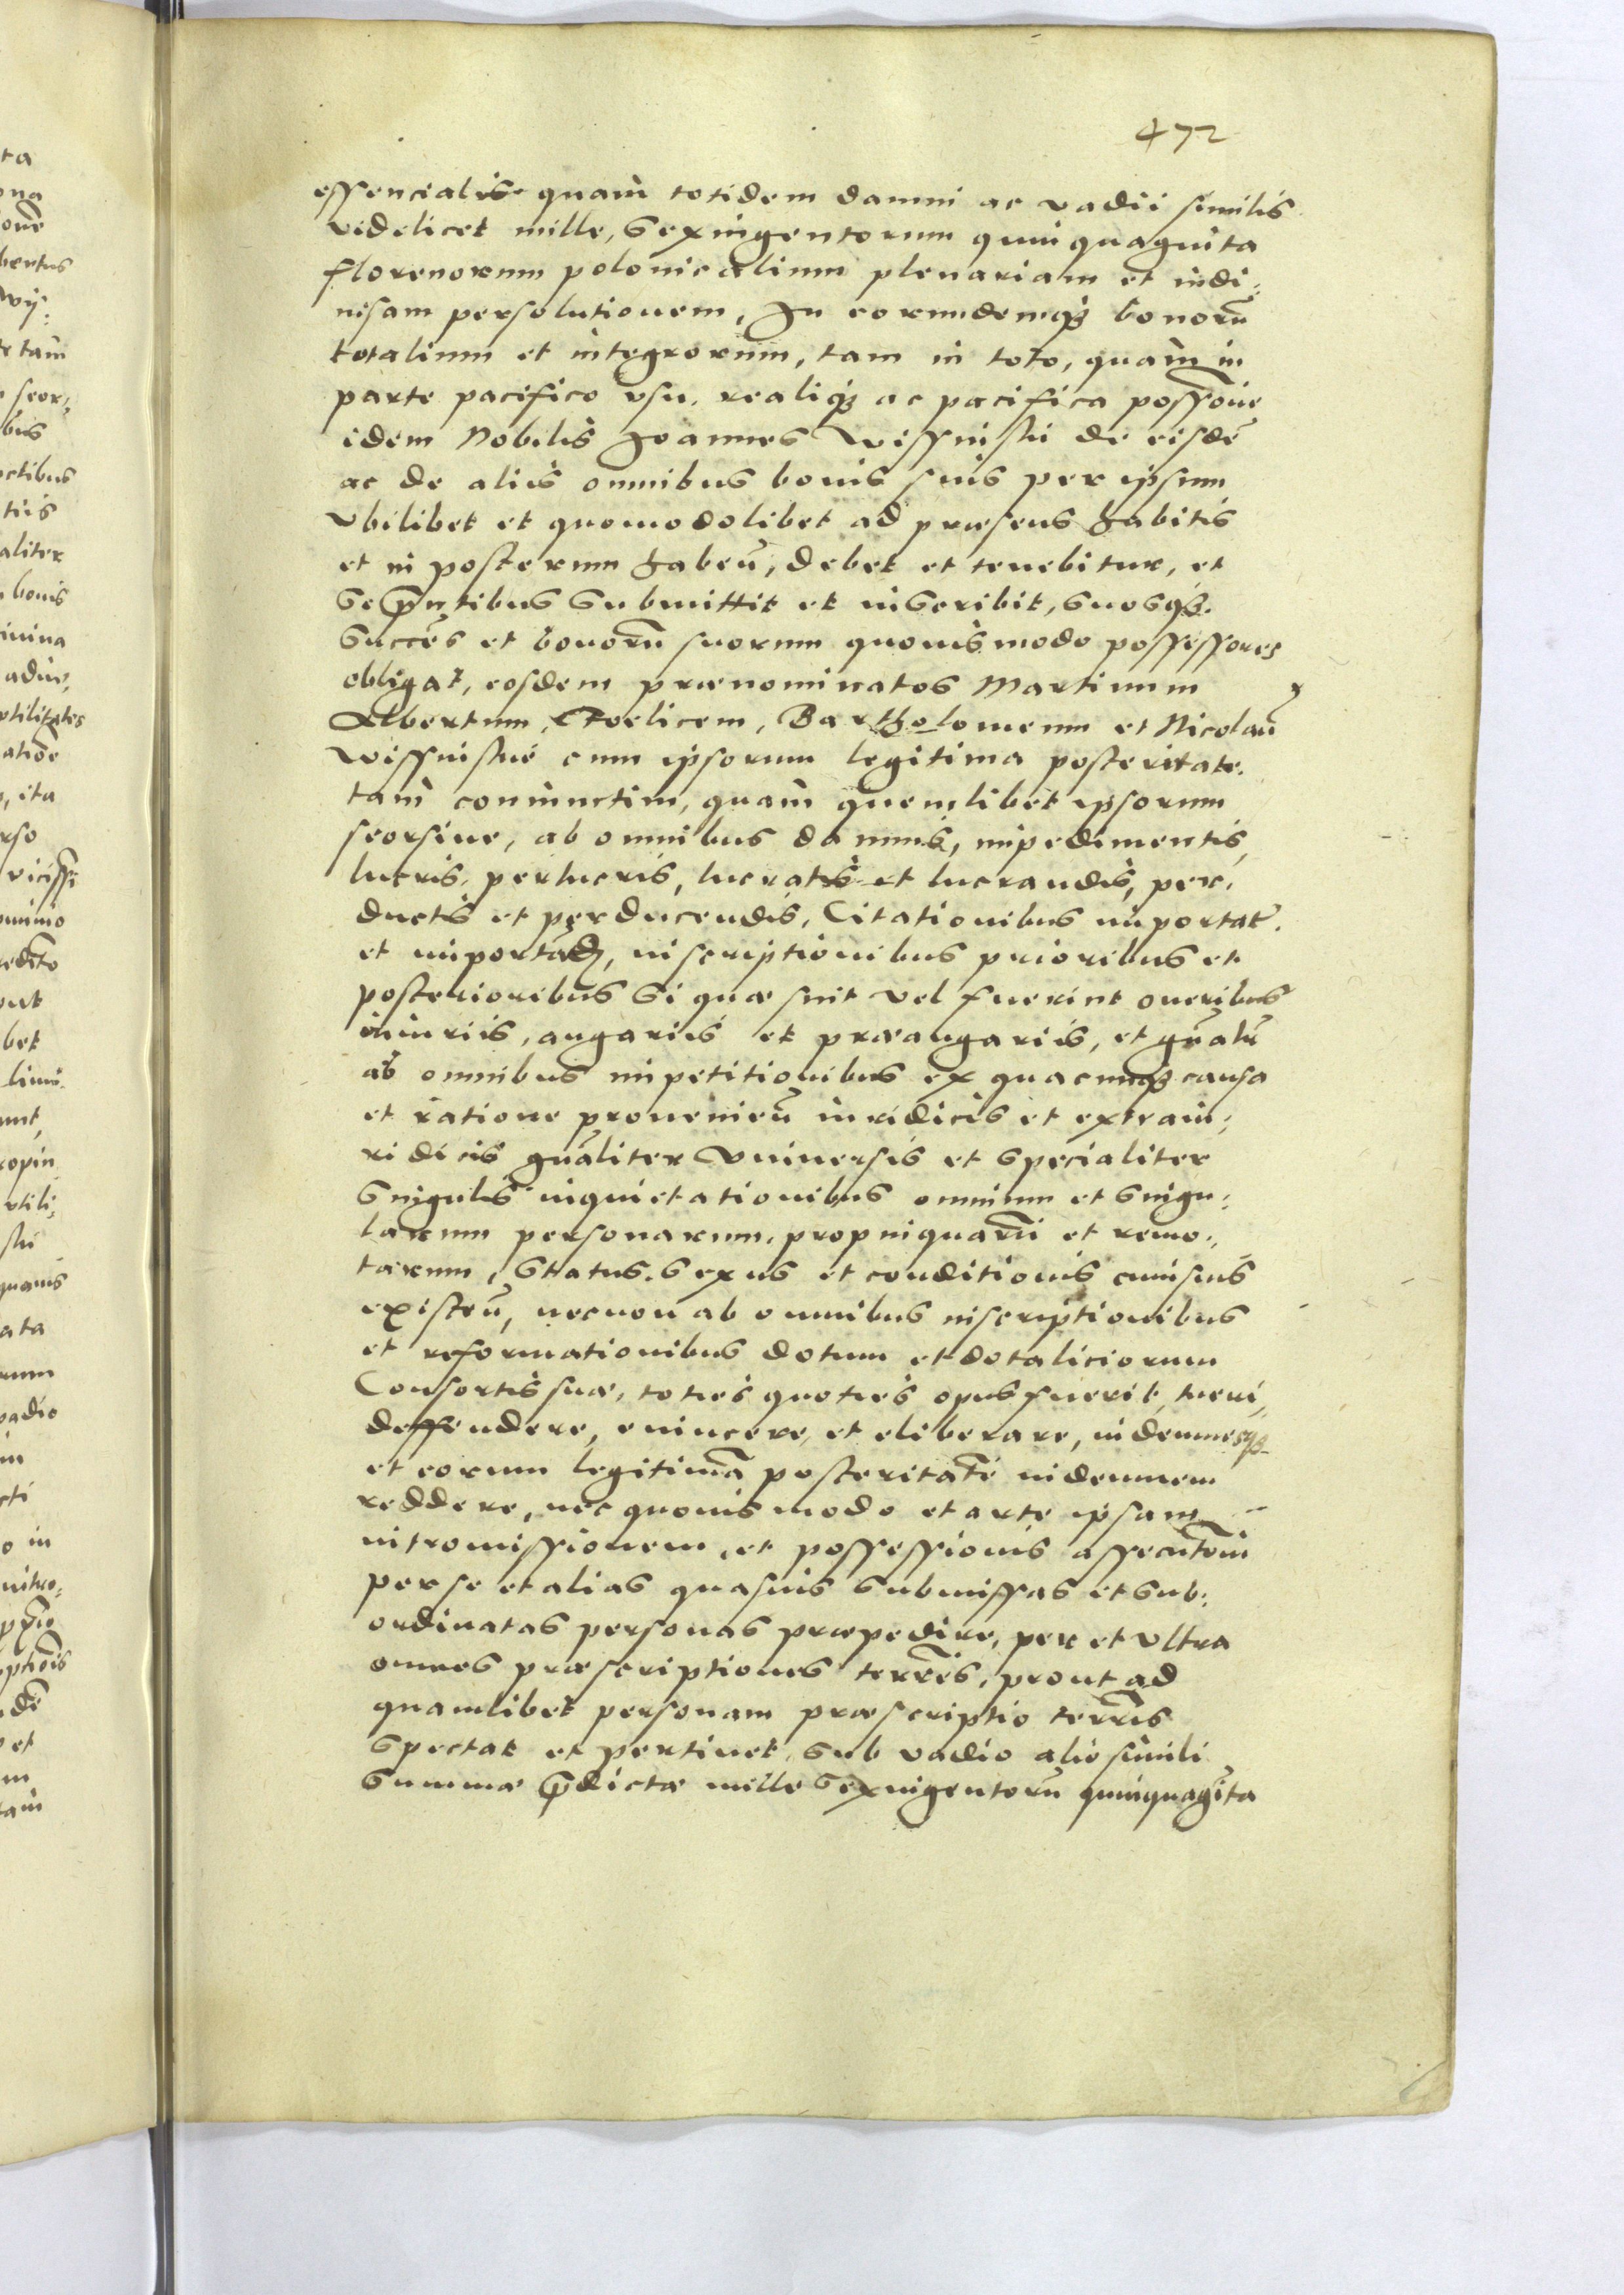 472
essencialis quam totidem damni ac vadii similis
videlicet mille, sexingentorum quinquaginta
florenorum polonicalium plenariam et indi:
uisam persolutionem, In eorundemq3 bonorũ
totalium et integrorum, tam in toto, quam in
parte pacifico vsu, realiq3 ac pacifica possõne
idem Nobilis Joannes Wissniski de eisdẽ
ac de aliis omnibus bonis suis per ipsum
vbilibet et quomodolibet ad præsens habitis
et in posterum habeñ, debet et tenebitur, et
se p̃ntibus submittit et inscribit, suosq3
succẽs et bonorũ suorum quouismodo possessores
obligat, eosdem prænominatos Martinum
Albertum, Foelicem, Bartholomeum et Nicolaũ
Wissniskie cum ipsorum legitima posteritate.
tam coniunctim, quam quemlibet ipsorum
seorsiue, ab omnibus damnis, impedimentis,
lucris, perlucris, lucratis et lucrandis, per:
ductis et perducendis, Citationibus importat̃.
et importañd, inscriptionibus prioribus et
posterioribus si quæ sint vel fuerint oneribus
iniuriis, angariis et præangariis, et gñalr̃
ab omnibus impetitionibus ex quacunq3 causa
et ratione prouenieñ iuridicis et extraiu:
ridicis gñaliter vniuersis et specialiter
singulis inquietationibus omnium et singu:
larum personarum, propinquarũ et remo:
tarum, status, sexus et conditionis cuiusuis
existeñ, necnon ab omnibus inscriptionibus
et reformationibus dotum et dotaliciorum
Consortis suæ, toties quoties opus fuerit, tueri,
deffendere, euincere, et eliberare, indemnesq3
et eorum legitimã posteritatẽ indemnem
reddere, nec quouis modo et arte ipsam
intromissionem, et possessionis assecutõem
per se et alias quasuis submissas et sub:
ordinatas personas præpedire, per et vltra
omnes præscriptiones terr̃es, prout ad
quamlibet personam præscriptio terr̃is
spectat et pertinet, sub vadio alio simili
summæ p̃dictæ mille sexingentorũ quinquagĩta